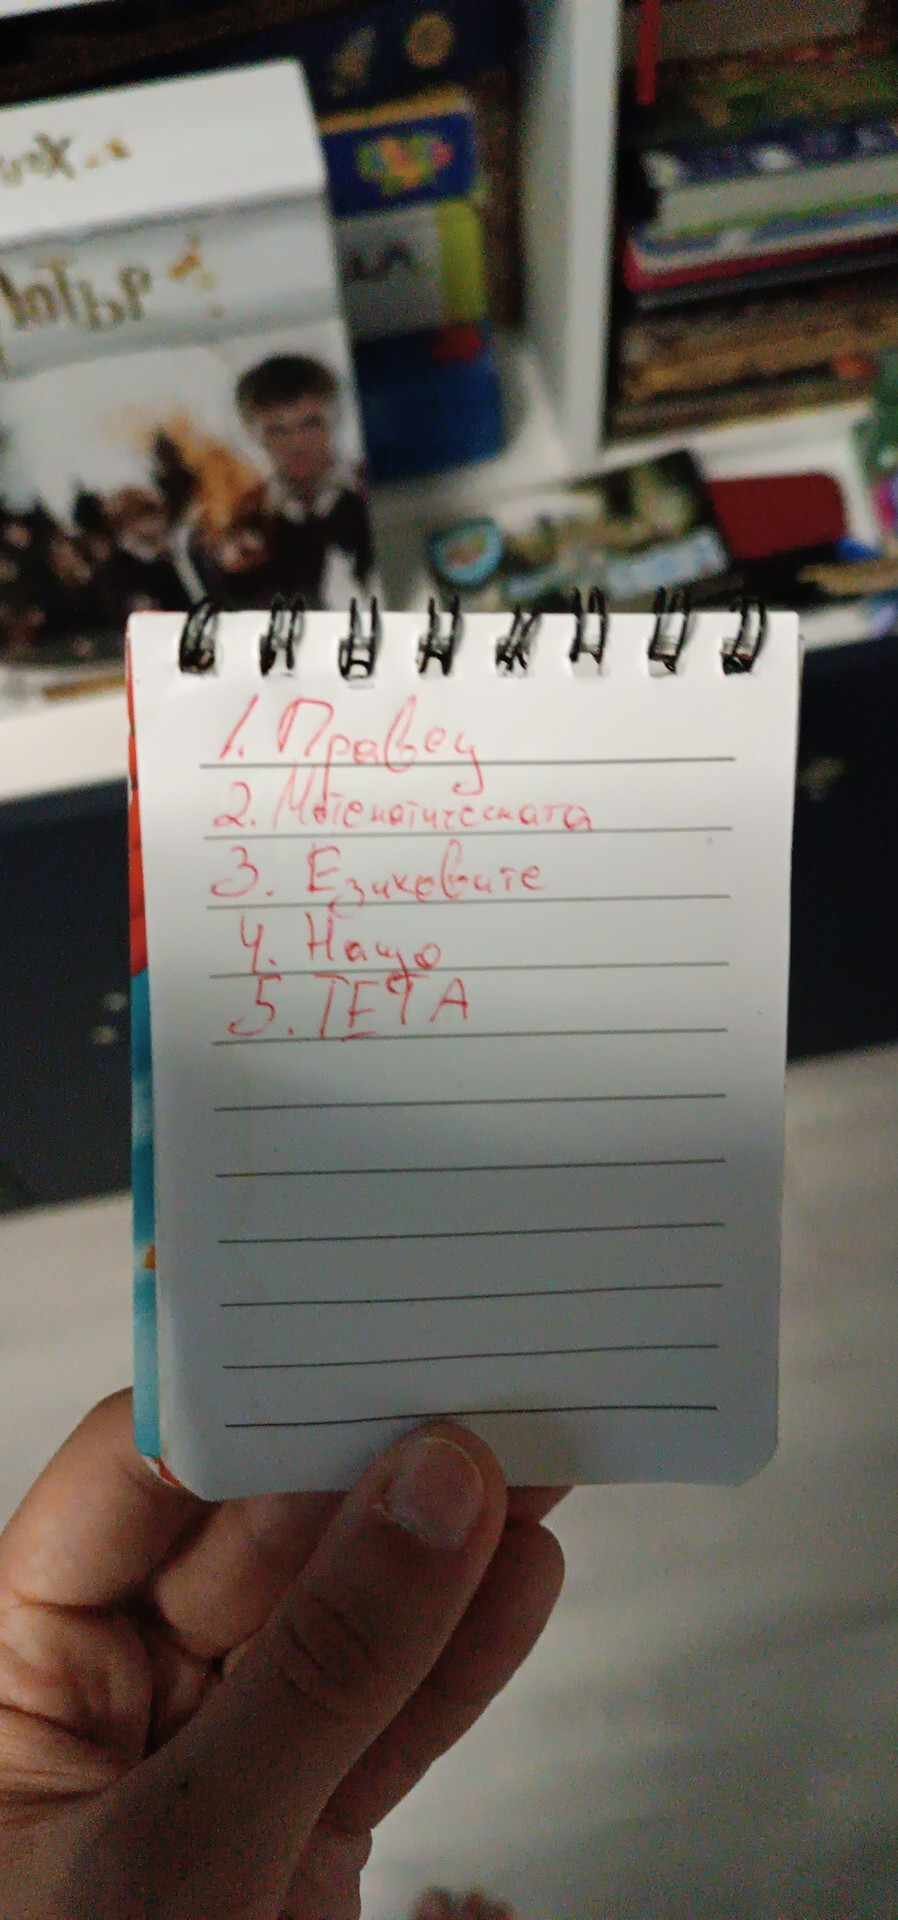 Потър
1. Правец
2. Математическата
3. Езиковите
4. Нащо
5. ТЕТА